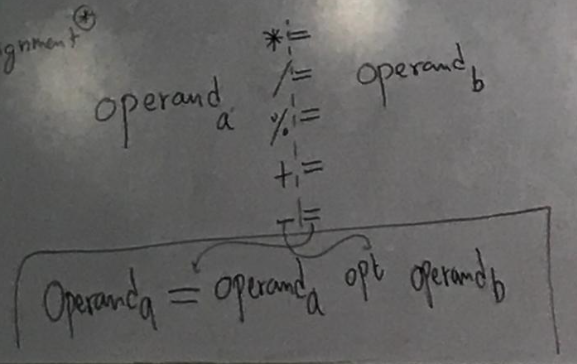 gnment *
*=
/=
operand a %= operand b
+=
-=
Operand a = operand a opt operand b